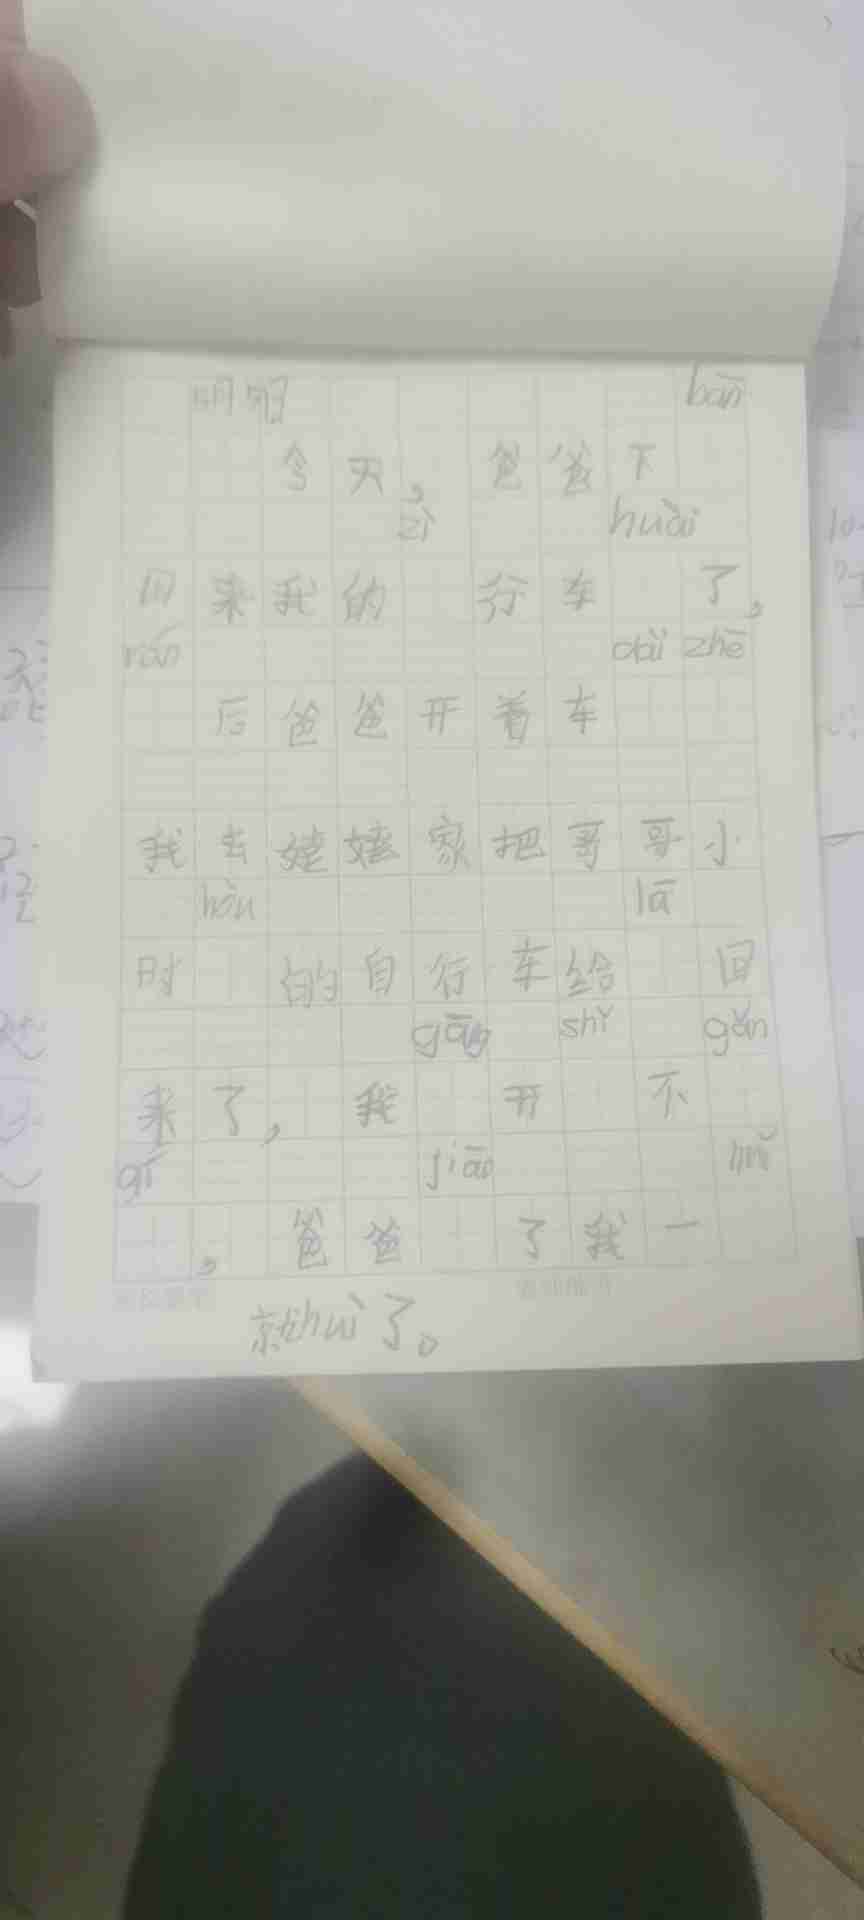 明明 bān
今天，爸爸下
zì huài
回来我的 行车 了，
rán dài zhē
后爸爸开着车
我去姥姥家把哥哥小
hòu lā
时 的自行车给 回
gāng shǐ gǎn
来了，我 开 不
qí jiāo huǐ
，爸爸 了我一
就huì了。